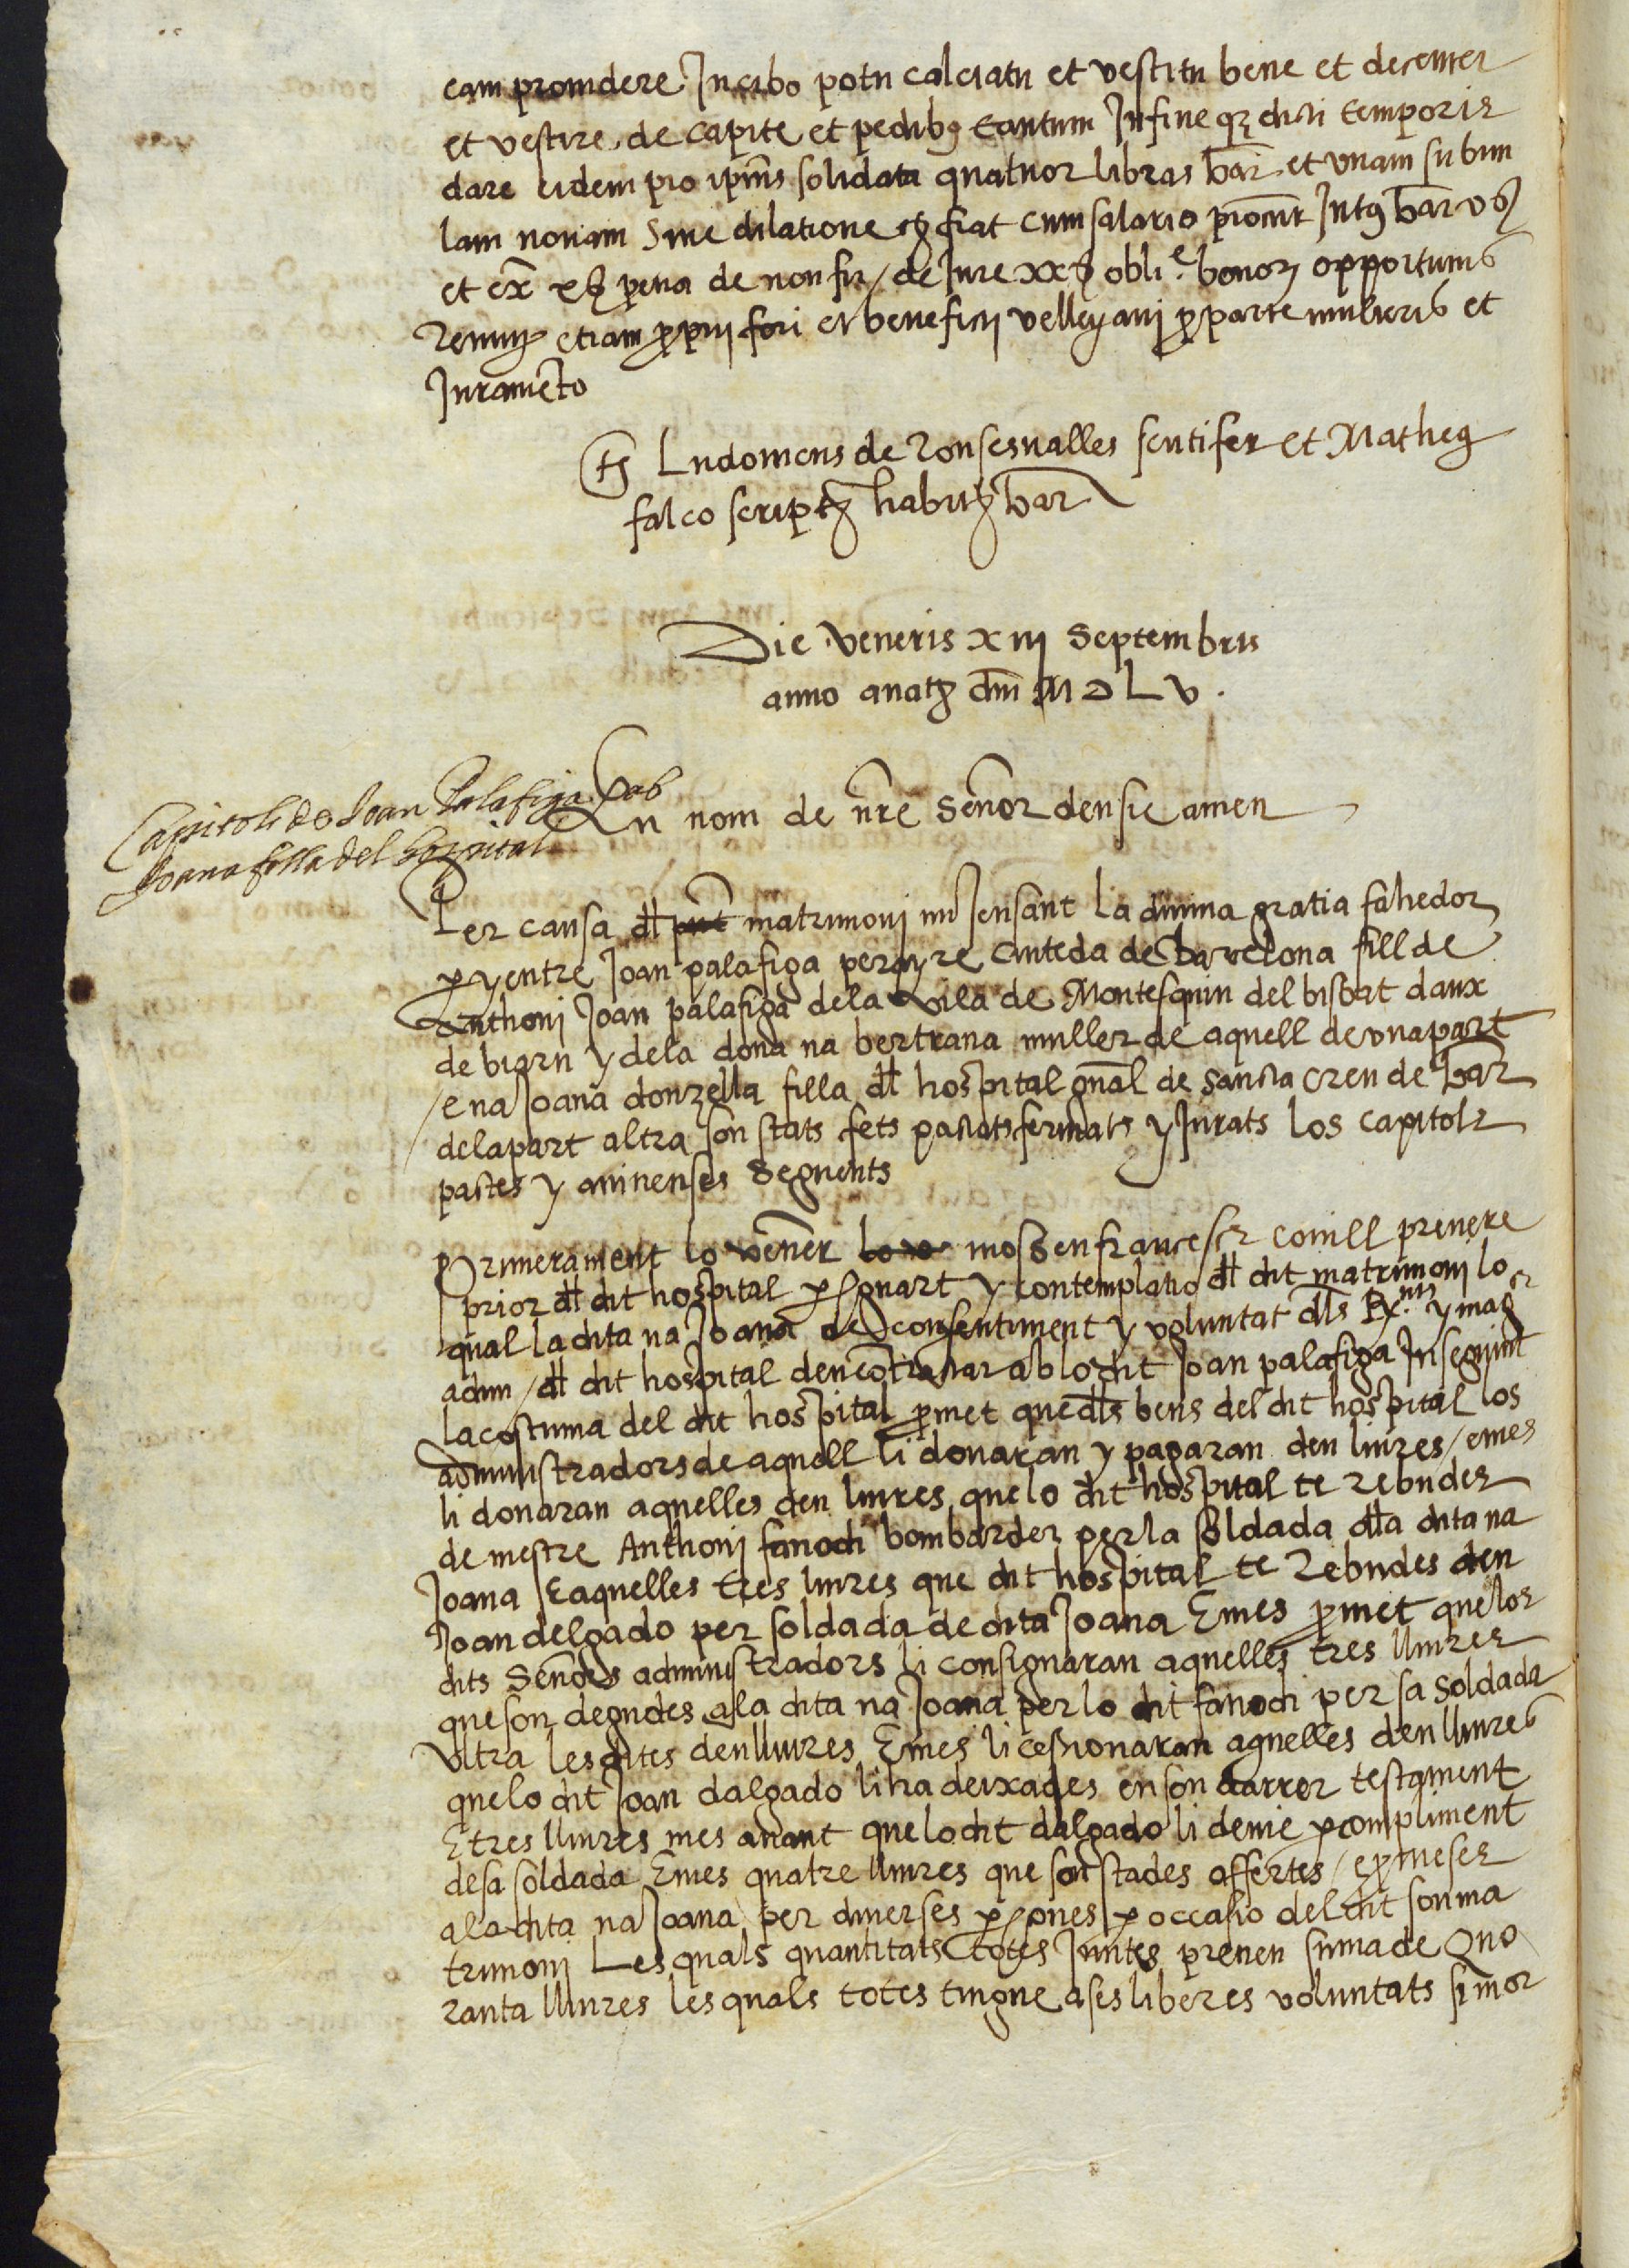 eam prouidere In cibo potu calciatu et vestitu bene et decenter
et vestire de capite et pedibus tantum In fine qz dicti temporis
dare eidem pro ipius solidata quatuor libras bar et vnam subuu
lam nouam sine dilatione fiat cum salario procur Intus bar
et ex pena de non fir / de Iure obli e bonor opportunis
Renun etiam propij fori et beneficij velleyani per parte mulieris et
Iuramento
ts Ludouicus de Ronsesualles sentifer et Matheus
falco script habit bar
Die veneris xiij Septembris
anno anat dni M D L v.
Capitols de Joan Palafiga ab
Joana filla del hospital
En nom de nre senor deu sie amen
Per causa dl put matrimoni mijensant la diuina gratia fahedor
per y entre Joan palafiga perayre Ciuteda de Barcelona fill de
Anthonj Joan palafiga dela vila de Montesquiu del bisbat daux
de biarn y dela dona na bertrana muller de aquell de vna part
/ e na Joana donzella filla dl hospital gnal de sancta creu de bar
dela part altra son stats fets pactats fermats y Jurats los capitols
pactes y auinenses seguents
Primerament lo vener lo ve mossen francesch conill preuere
prior dl dit hospital per sguart y contemplatio dl dit matrimonj lo
qual la dita na Joana de consentiment y voluntat dls Rx.nts y magchs
admi / dl dit hospital deu contractar ab lo dit Joan palafiga Inseguint
la costuma del dit hospital promet que dls bens del dit hospital los
administradors de aquell li donaran y pagaran deu liures / e mes
li donaran aquelles deu liures que lo dit hospital te rebudes
de mestre Anthonj fanoch bombarder per la soldada dla dita na
Joana E aquelles tres liures que dit hospital te rebudes den
Joan delgado per soldada de dita Joana E mes promet que los
dits señors administradors li consignaran aquelles tres lliures
que son degudes a la dita na Joana per lo dit fanoch per sa soldada
vltra les dites deu lliures E mes li cessionaran aquelles deu lliures
que lo dit Joan dalgado li ha deixades en son darrer testament
E tres lliures mes auant que lo dit dalgado li deuie per compliment
de sa soldada E mes quatre lliures que son stades offertes / e promeses
a la dita na Joana per diuerses persones per occasio del dit son ma
trimonj Les quals quantitats totes Juntes prenen suma de Quo
ranta lliures les quals totes tingue a ses liberes voluntats si mor